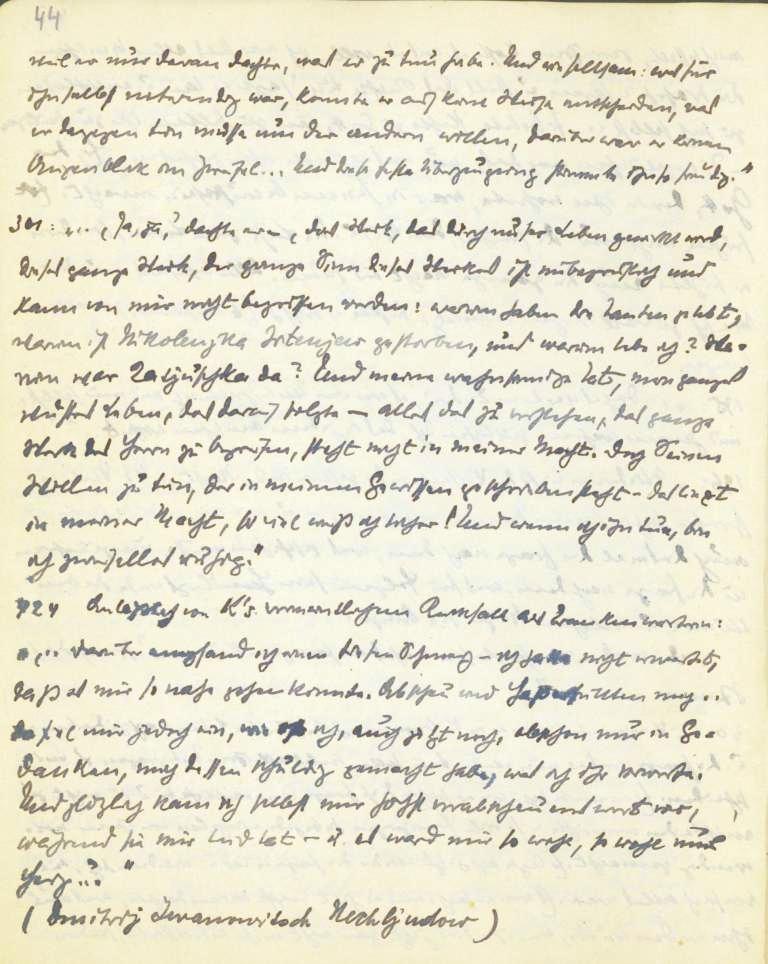 44
weil er nur daran dachte, was er zu tun habe. Und wie seltsam: was für
ihn selbst notwendig war, konnte er auf keine Weise entscheiden, was
er dagegen tun müsse um der andern willen, darüber war er keinen
Augenblick im Zweifel... Und diese feste Überzeugung stimmte ihn so freudig."
301: ... „Ja, ja," dachte er, „das Werk, das durch unser Leben gewirkt wird,
dieses ganze Werk, der ganze Sinn dieses Werkes ist unbegreiflich und
kann von mir nicht begriffen werden: warum haben die Tanten gelebt,
warum ist Nikolenjka Irtenjew gestorben, und warum lebe ich? Wa-
rum war Katjuschka da? Und meine wahnsinnige Tat, mein ganzes
wüstes Leben, das darauf folgte – alles das zu verstehen, das ganze
Werk des Herrn zu begreifen, steht nicht in meiner Macht. Doch Seinen
Willen zu tun, der in meinem Gewissen geschrieben steht – das liegt
in meiner Macht, so viel weiß ich sicher! Und wenn ich ihn tue, bin
ich zweifellos ruhig."
424 Anlässlich von K's vermeintlichem Rückfall als Krankenwärterin:
„.. darüber empfand ich einen tiefen Schmerz – ich hatte nicht erwartet,
daß es mir so nahe gehen konnte. Abscheu und Haß erfüllten mich ..
da fiel mir jedoch ein, wie oft ich, auch jetzt noch, obschon nur in Ge-
danken, mich dessen schuldig gemacht habe, was ich ihr vorwerfe.
Und plötzlich kam ich selbst mir höchst verabscheuenswert vor,
während sie mir leid tat – u. es ward mir so wohl, so wohl ums
Herz ..."
(Dmitrij Iwanowitsch Nechljudow)